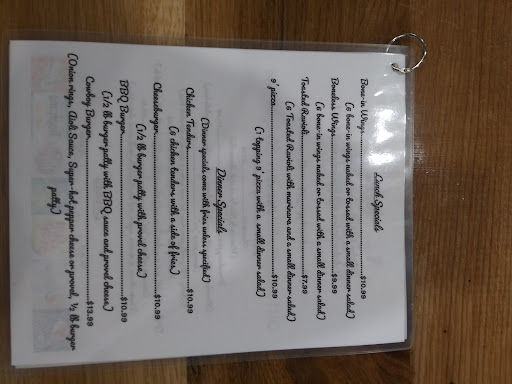 Lunch Specials
Bone-in Wings..........$10.99
(6 bone-in wings naked or tossed with a small dinner salad)
Boneless Wings..........$9.99
(6 bone-in wings naked or tossed with a small dinner salad)
Toasted Ravioli..........$7.99
(6 Toasted Ravioli with marinara and a small dinner salad)
9" pizza..........$10.99
(1 topping 9" pizza with a small dinner salad)
Dinner Specials
(Dinner specials come with fries unless specified)
Chicken Tenders..........$10.99
(6 chicken tenders with a side of fries)
Cheeseburger..........$10.99
(1/2 lb burger patty with provel cheese)
BBQ Burger..........$10.99
(1/2 lb burger patty with BBQ sauce and provel cheese)
Cowboy Burger..........$13.99
(Onion rings, Aioli Sauce, Super-hot pepper cheese or provel, ½ lb burger
patty)